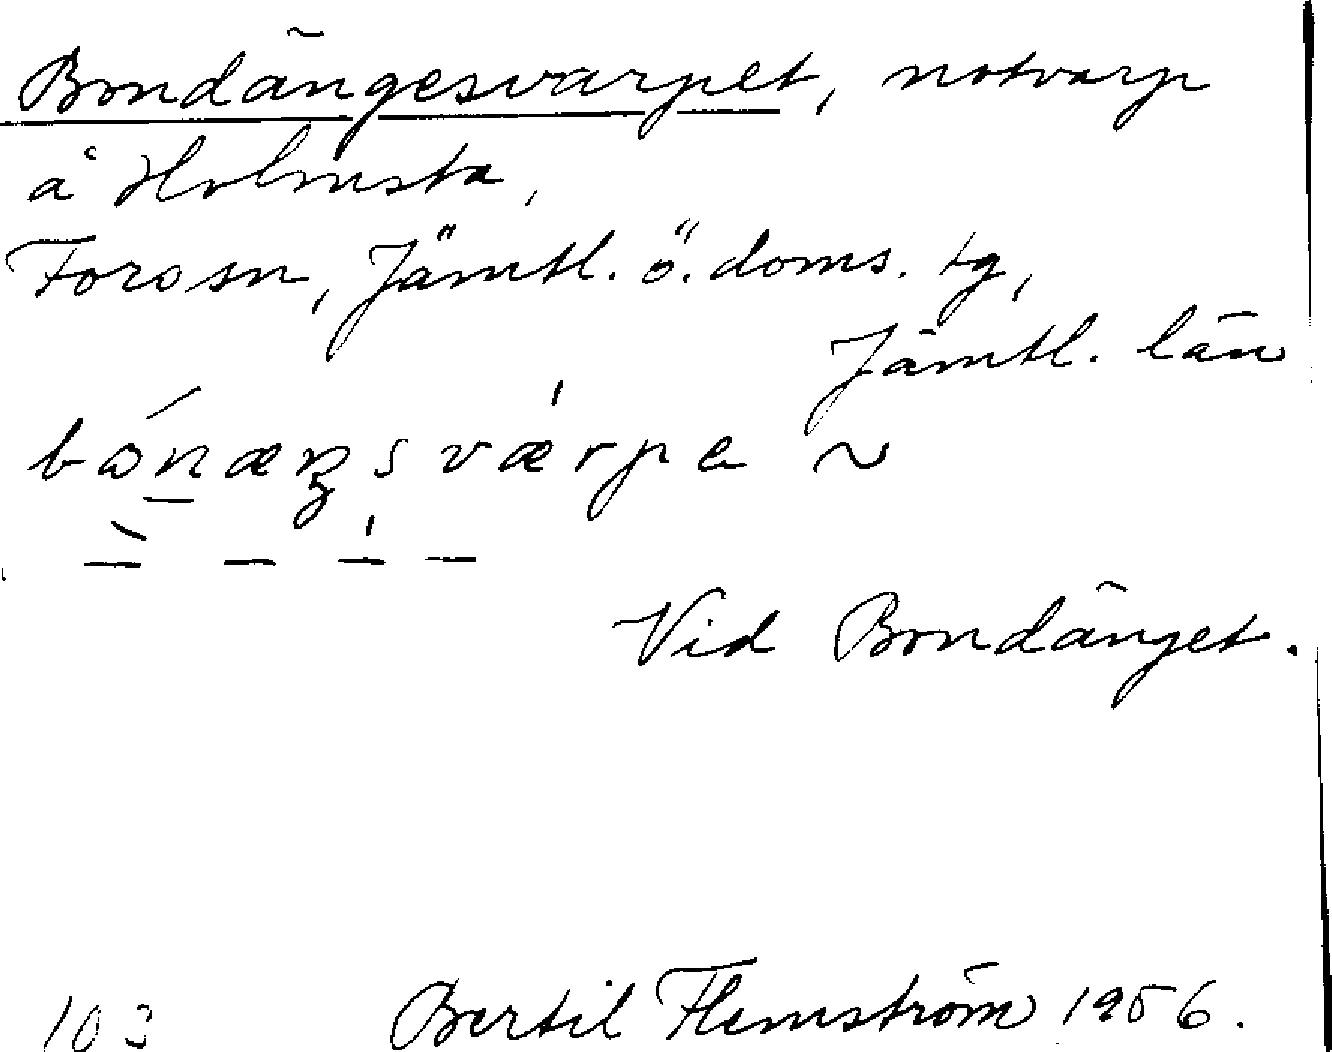 Bondängesvarpet, notvarp
å Holmsta,
Fors sn, Jämtl. ö. doms. tg,
Jämtl. län
Vid Bondänget.
103 Bertil Flemström 1956.